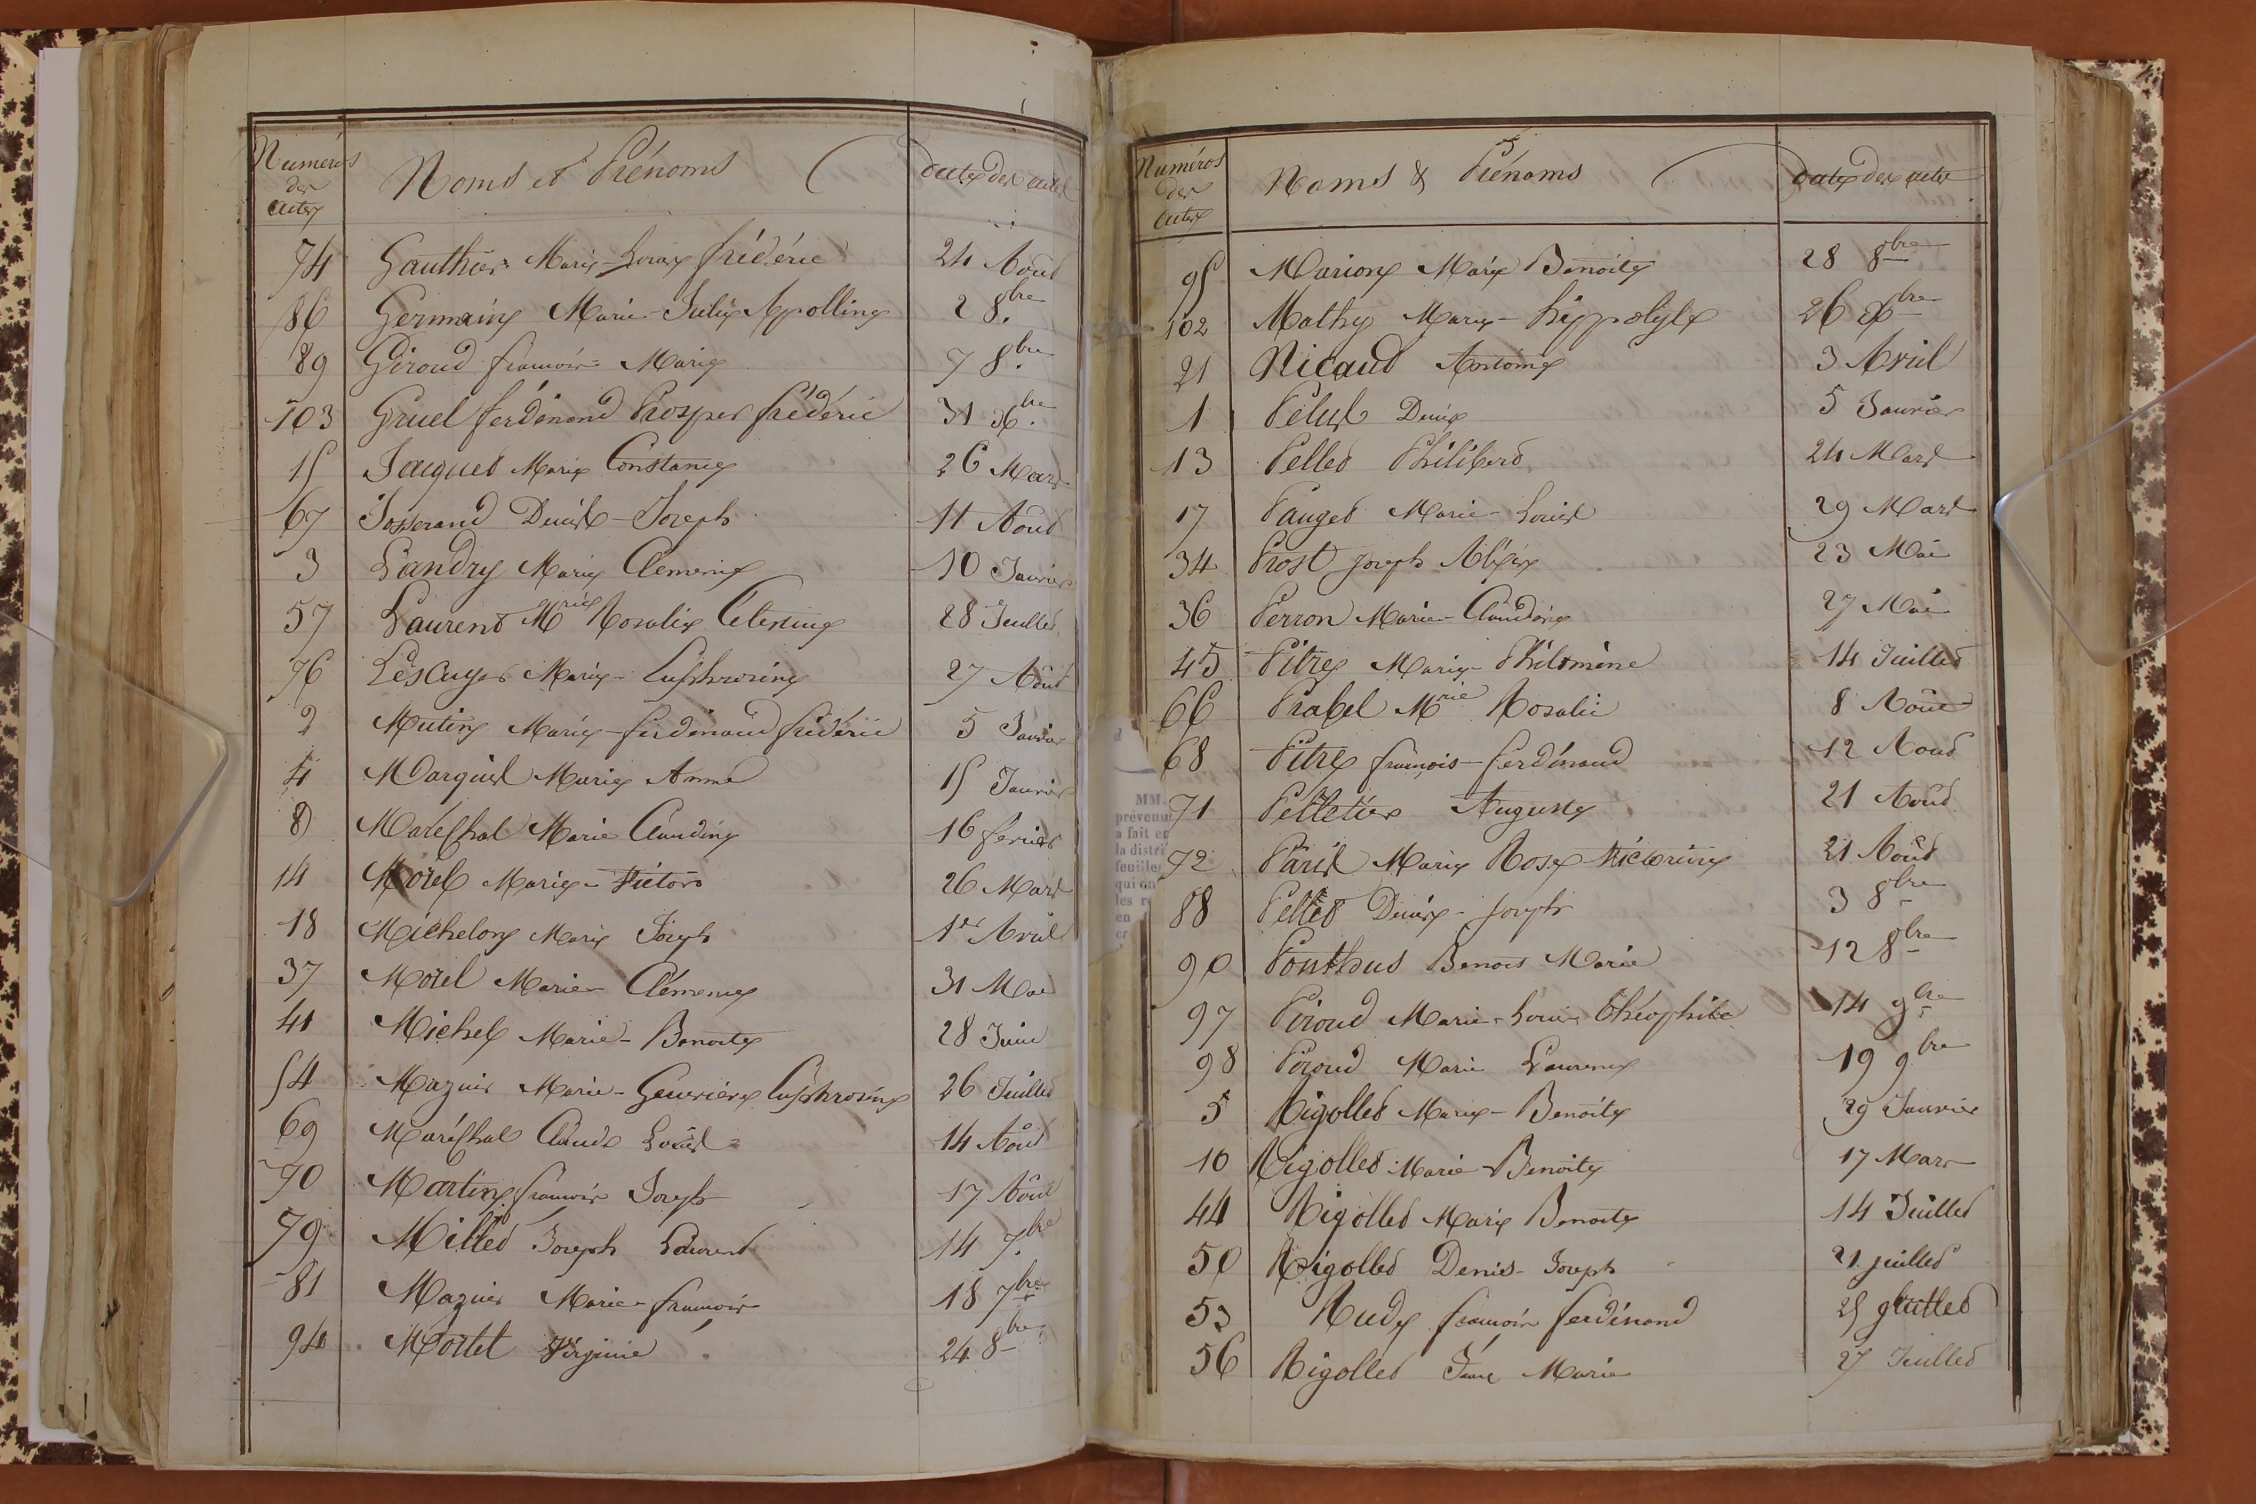 Numéros des actes Noms et Prénoms Dates des actes
74 Gauthier Marie-Louis frédéric 24 Août
86 Germain Marie-Julie Apolline 2 8bre
89 Giroud francois-Marie 7 8bre
103 Gruel ferdinand Prosper frédéric 31 Xbre
15 Jacquet Marie Constance 26 Mars
67 Josserand Denis-Joseph 11 Août
3 Landry Marie Clemence 10 Janvier
57 Laurent Mrie Rosalie Celestine 28 Juillet
76 Lescuyer Marie-Euphrosine 27 Août
2 Mutin Marie-ferdinand frédéric 5 Janvier
4 Marquis Marie Anne 15 Janvier
8 Maréchal Marie Claudine 16 fevrier
14 Morel Marie-Victor 26 Mars
18 Michelon Marie Joseph 1er Avril
37 Morel Marie-Clémence 31 Mai
41 Michel Marie-Benoite 28 Juin
54 Mazuir Marie-Geneviève Euphrosine 26 Juillet
69 Maréchal Claude Louis 14 Août
70 Martin francois Joseph 17 Août
79 Millet Joseph Laurent 14 7bre
81 Mazuir Marie-francois 18 7bre
94 Mortel Virginie 24 8bre
Numéros des actes Noms & Prénoms Dates des actes
95 Marion Marie Benoite 28 8bre
102 Mathy Marie-hippolyte 26 Xbre
21 Nicaud Antoine 3 Avril
1 Pélus Denis 5 Janvier
13 Pellet Philibert 24 Mars
17 Pauget Marie-Louis 29 Mars
34 Prost joseph Aléxis 23 Mai
36 Perron Marie-Claudine 27 Mai
45 Pitre Marie-Philomène 14 Juillet
66 Prabel Mrie Rosalie 8 Août
68 Pitre françois-ferdinand 12 Août
71 Pelletier Auguste 21 Août
72 Paris Marie Rose Victorine 21 Août
88 Pellet Denis-joseph 3 8bre
90 Ponthus Benoit Marie 12 8bre
97 Piroud Marie-Louis Théophile 14 9bre
98 Piroud Marie Laurence 19 9bre
5 Rigollet Marie-Benoite 29 Janvier
10 Rigollet Marie-Benoite 17 Mars
44 Rigollet Marie Benoite 14 Juillet
50 Rigollet Denis-Joseph 21 juillet
53 Rude francois ferdinand 25 juillet
56 Rigollet Jean Marie 27 Juillet
MM.
prévenu
a fait en
la distri
feuille
qui on
les r
en
er